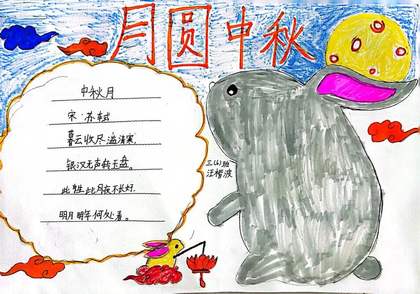 月圆中秋
中秋月
宋·苏轼
暮云收尽溢清寒,
银汉无声转玉盘。
此生此夜不长好,
明月明年何处看。
三(6)班
汪梓波